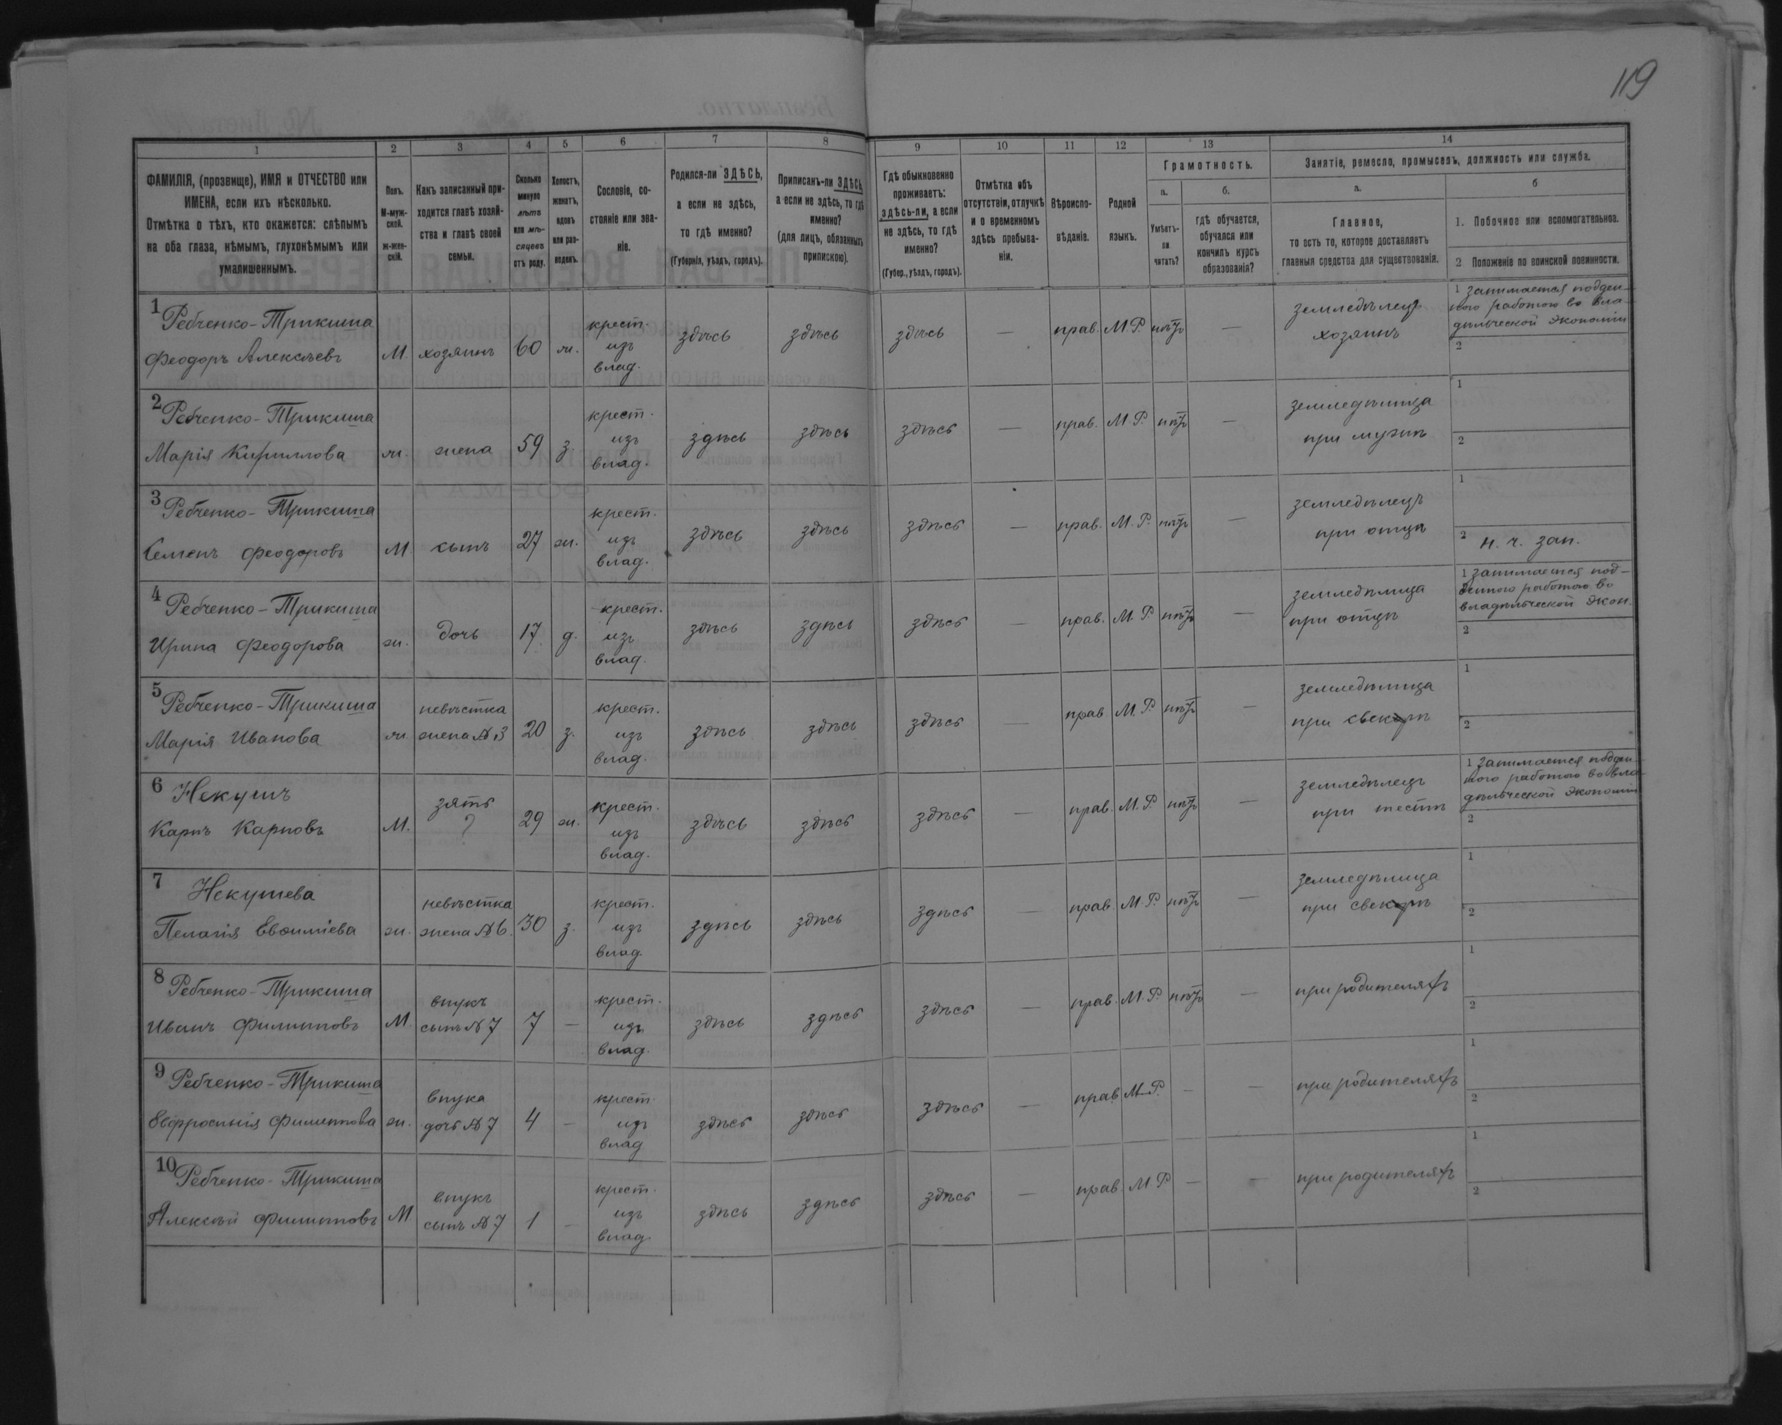 119
1 2 3 4 5 6 7 8 9 10 11 12 13 14
ФАМИЛІЯ, (прозвище), ИМЯ и ОТЧЕСТВО или ИМЕНА, если ихъ нѣсколько.
Отмѣтка о тѣхъ, кто окажется: слѣпымъ на оба глаза, нѣмымъ, глухонѣмымъ или умалишеннымъ.
Полъ. М-мужской. ж-женскій.
Какъ записанный приходится главѣ хозяйства и главѣ своей семьи.
Сколько минуло лѣтъ или мѣсяцевъ отъ роду.
Холостъ, женатъ, вдовъ или разведенъ.
Сословіе, состояніе или званіе.
Родился-ли ЗДѢСЬ, а если не здѣсь, то гдѣ именно?
(Губернія, уѣздъ, городъ).
Приписанъ-ли ЗДѢСЬ, а если не здѣсь, то гдѣ именно?
(для лицъ, обязанныхъ припискою).
Гдѣ обыкновенно проживаетъ: здѣсь-ли, а если не здѣсь, то гдѣ именно?
(Губер., уѣздъ, городъ).
Отмѣтка объ отсутствіи, отлучкѣ и о временномъ здѣсь пребываніи.
Вѣроисповѣданіе.
Родной языкъ.
Грамотность.
а. Умѣетъ-ли читать?
б. гдѣ обучается, обучался или кончилъ курсъ образованія?
Занятіе, ремесло, промыселъ, должность или служба.
а. Главное, то есть то, которое доставляетъ главныя средства для существованія.
б
1. Побочное или вспомогательное.
2 Положеніе по воинской повинности.
1 Ребченко-Трикиша Феодоръ Алексѣевъ М хозяинъ 60 ж. крест. изъ влад. здѣсь здѣсь здѣсь — прав. М Р нѣтъ — земледѣлецъ хозяинъ 1 занимается поденною работою во владѣльческой экономіи 2
2 Ребченко-Трикиша Марія Кириллова ж. жена 59 з. крест. изъ влад. здѣсь здѣсь здѣсь — прав. М Р. нѣтъ — земледѣлица при мужѣ 1 2
3 Ребченко-Трикиша Семенъ Феодоровъ М сынъ 27 ж. крест. изъ влад. здѣсь здѣсь здѣсь — прав. М. Р. нѣтъ — земледѣлецъ при отцѣ 1 2 н. ч. зап.
4 Ребченко-Трикиша Ирина Феодорова ж. дочь 17 д. крест. изъ влад. здѣсь здѣсь здѣсь — прав. М. Р. нѣтъ — земледѣлица при отцѣ 1 занимается поденною работою во владѣльческой экон. 2
5 Ребченко-Трикиша Марія Иванова ж. невѣстка жена № 3 20 з. крест. изъ влад. здѣсь здѣсь здѣсь — прав М. Р. нѣтъ — земледѣлица при свекрѣ 1 2
6 Некушъ Карпъ Карповъ М. зять ? 29 ж. крест. изъ влад. здѣсь здѣсь здѣсь — прав. М. Р. нѣтъ — земледѣлецъ при тестѣ 1 занимается поденною работою во владѣльческой экономіи 2
7 Некушева Пелагія Евфиміева ж. невѣстка жена № 6. 30 з. крест. изъ влад. здѣсь здѣсь здѣсь — прав М. Р. нѣтъ — земледѣлица при свекрѣ 1 2
8 Ребченко-Трикиша Иванъ Филипповъ М. внукъ сынъ № 7 7 — крест. изъ влад. здѣсь здѣсь здѣсь — прав. М. Р. нѣтъ — при родителяхъ 1 2
9 Ребченко-Трикиша Евфросинія Филиппова ж. внука дочь № 7 4 — крест. изъ влад здѣсь здѣсь здѣсь — прав М. Р. — — при родителяхъ 1 2
10 Ребченко-Трикиша Алексѣй Филипповъ М внукъ сынъ № 7 1 — крест. изъ влад. здѣсь здѣсь здѣсь — прав М. Р — — при родителяхъ 1 2